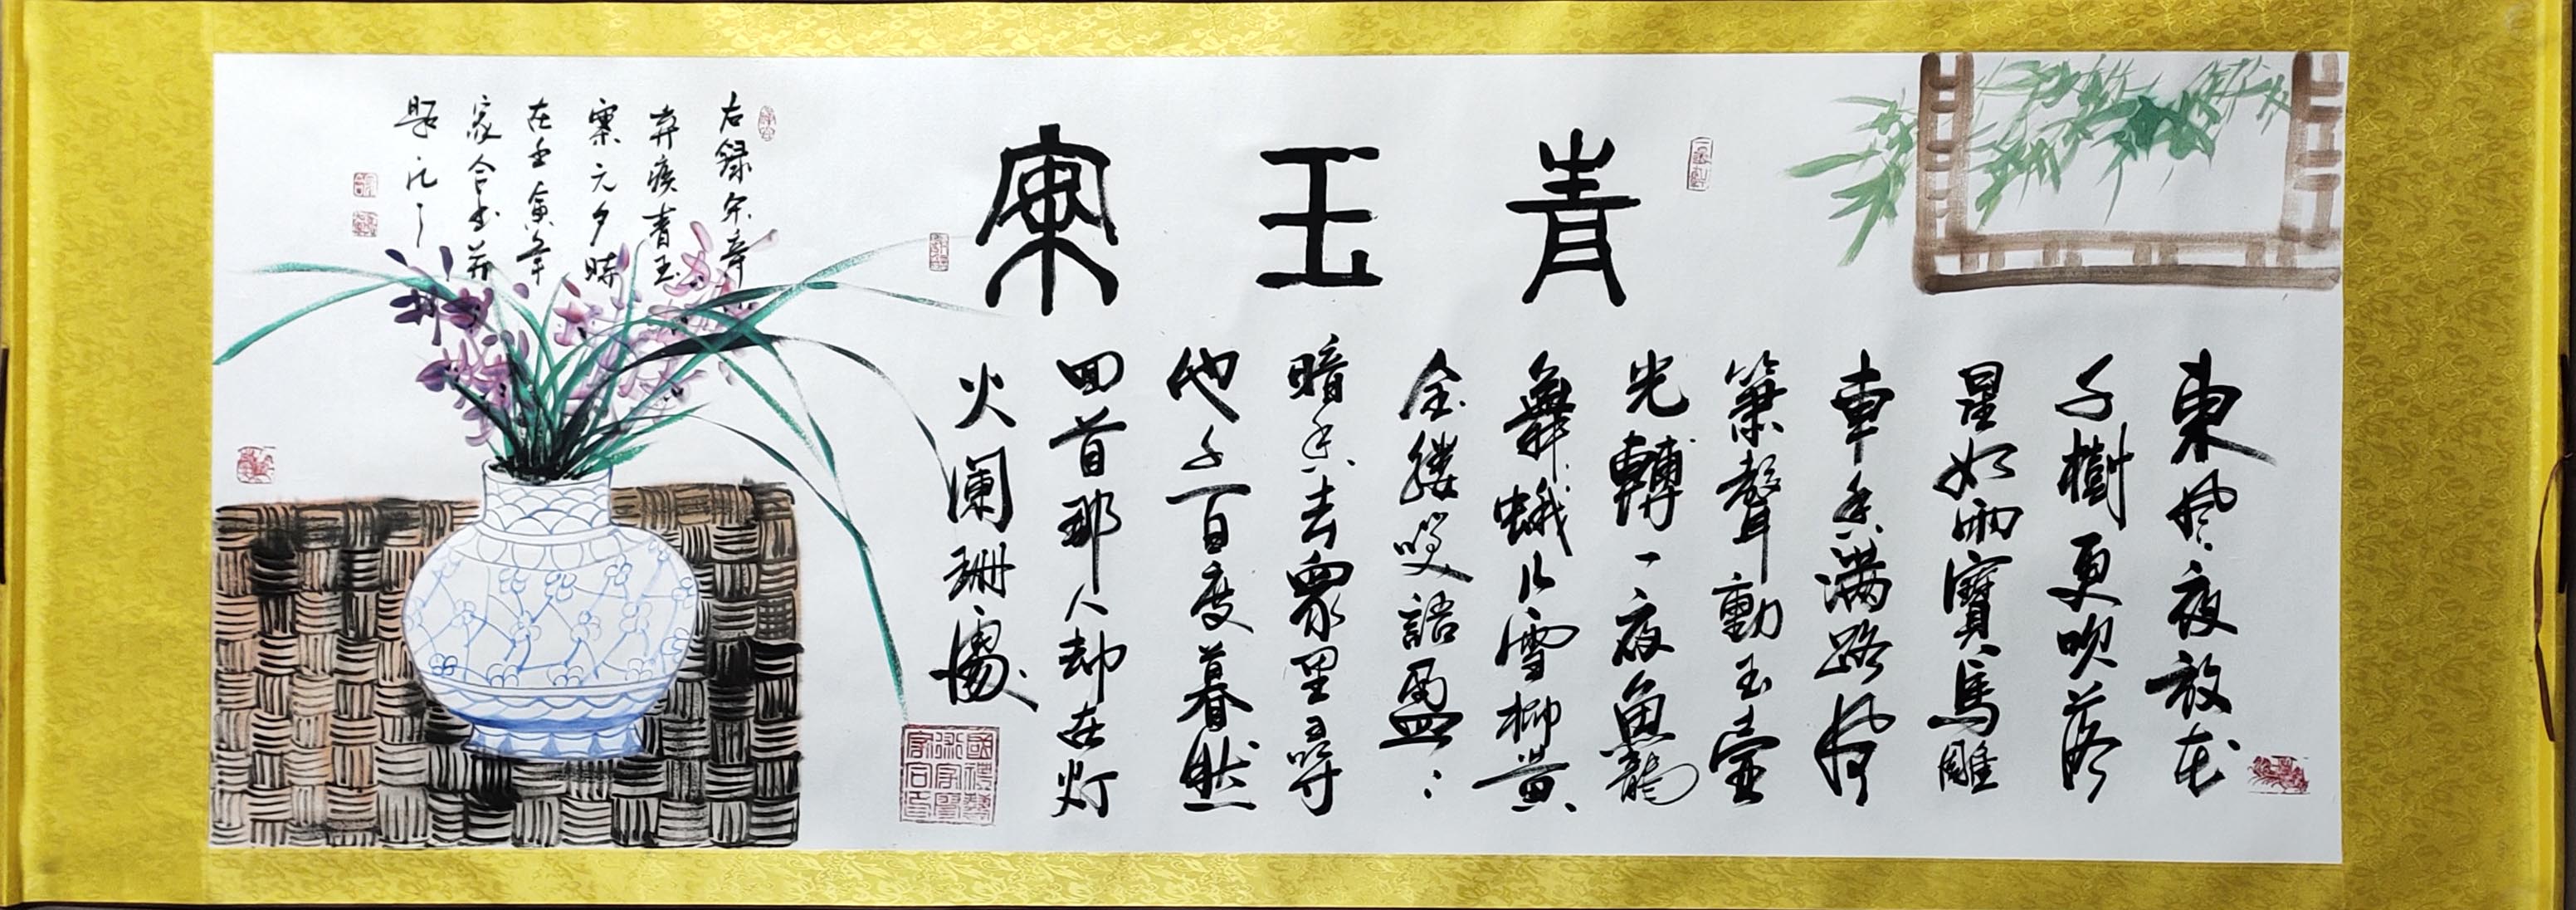 青玉案
東風夜放花
千樹更吹落
星如雨寶馬雕
車香滿路鳳
簫聲動玉壺
光轉一夜魚龍
舞蛾兒雪柳黃
金縷笑語盈:
暗香去眾里尋
他千百度暮然
回首那人却在灯
火闌珊處
右録宋辛
弃疾青玉
案元夕時
在壬寅年
家合书并
題记之